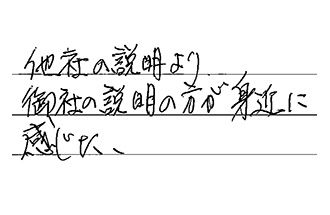 他社の説明より
御社の説明の方が身近に
感じた、